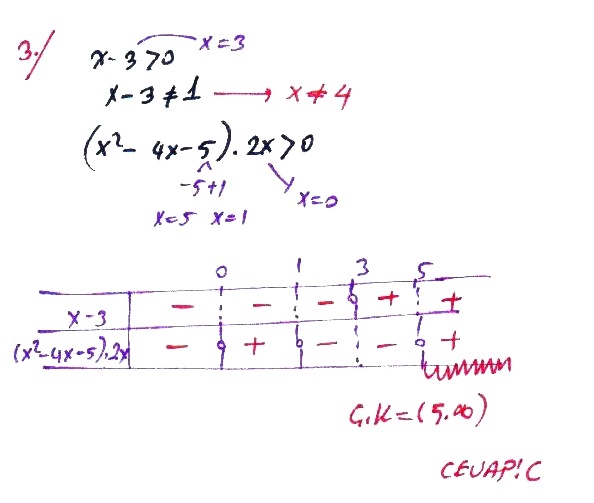 3./ x-3>0 x=3
x-3≠1 → x≠4
(x²-4x-5).2x>0
-5+1 x=0
x=5 x=1
0 1 3 5
x-3 - - - + +
(x²-4x-5).2x - + - - +
Ç.K=(5.∞)
CEVAP!C